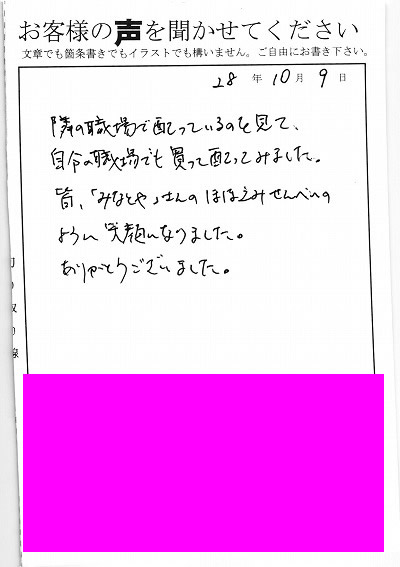 お客様の声を聞かせてください
文章でも箇条書きでもイラストでも構いません。ご自由にお書き下さい。
28年10月9日
隣の職場で配っているのを見て、
自分の職場でも買って配ってみました。
皆、「みなとや」さんのほほえみせんべいの
ように笑顔になりました。
ありがとうございました。
切り取り線